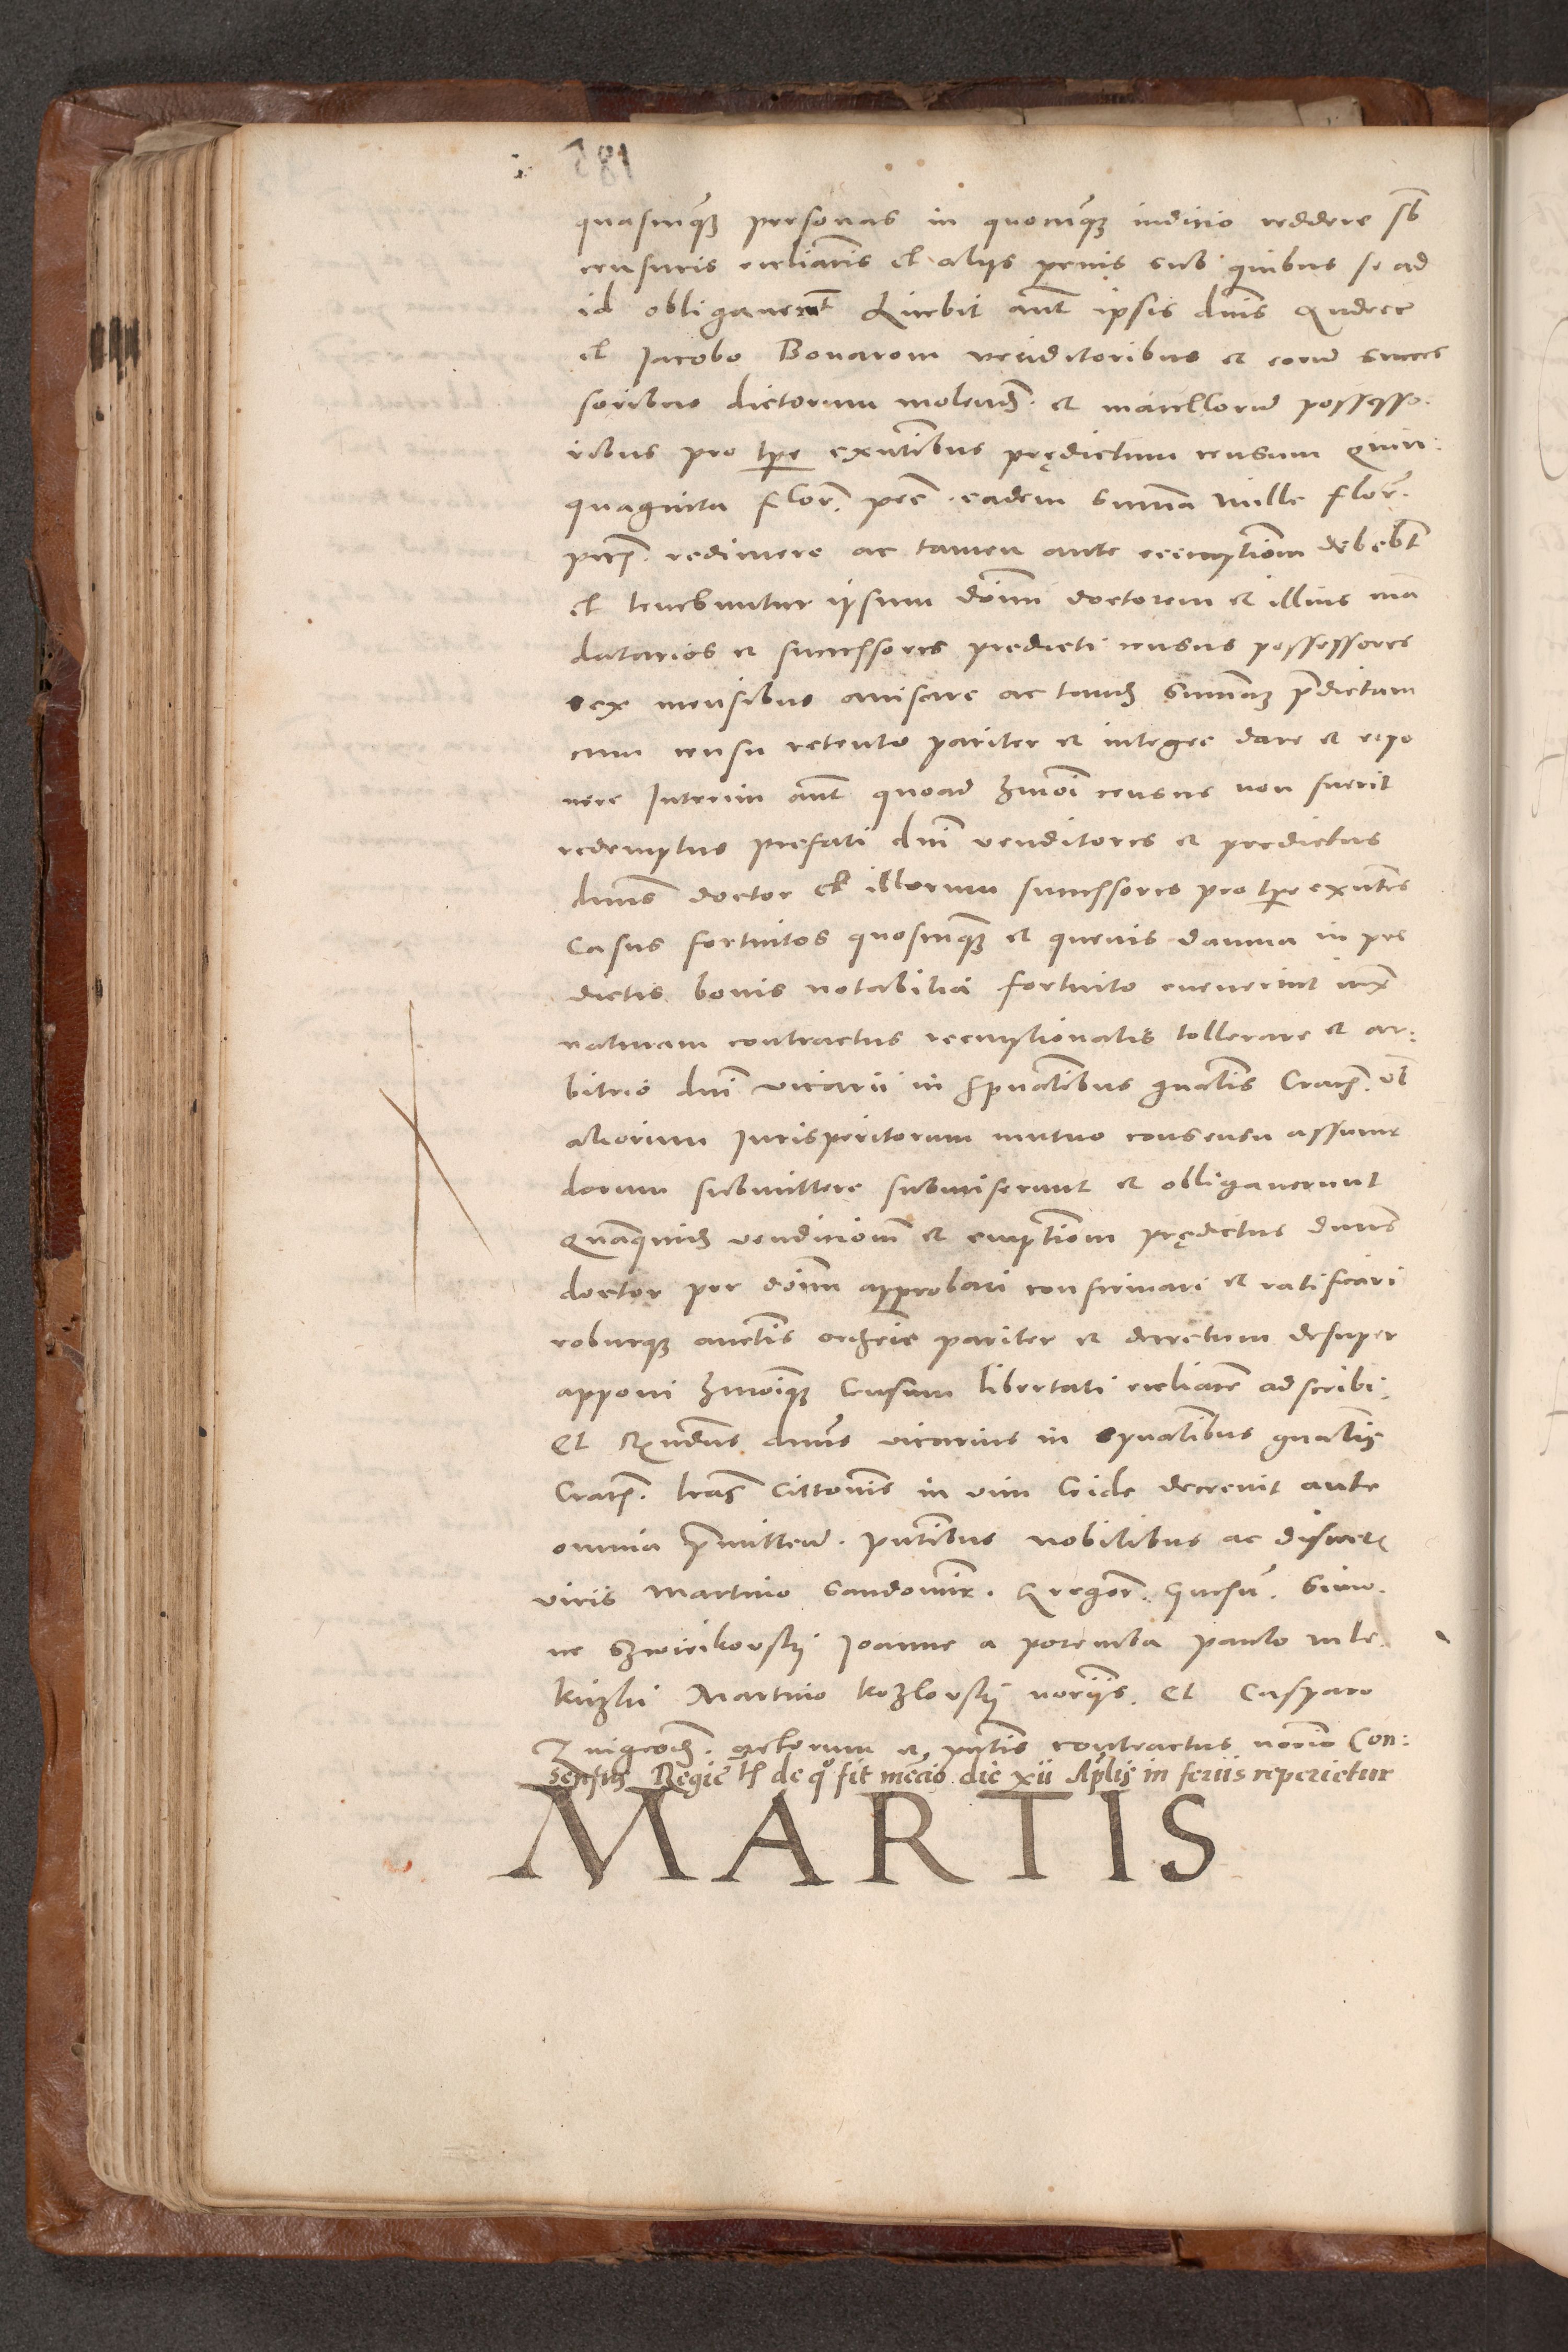 581
quascunq3 personas in quocunq3 iudicio reddere sb
censuris eccliacis et alijs penis sub quibus se ad
id obligauernt Licebit aut ipsis dnis Andree
et Jacobo Bonarom venditoribus et eorum succes
soribus dictorum molend. et macellorum possesso.
ribus pro tpe exntibus prędictum censum quin:
quaginta flor. pre. eadem summa mille flor.
pctis. redimere ac tamen ante reemptiom debebt
et tenebuntur ipsum dnm doctorem et illius man
datarios et successores predicti census possessores
sex mensibus auisare ac tand summa3 pdictam
cum censu retento pariter et integre dare et repo
nere Interim aut quoad hmoi census non fuerit
redemptus prefati dni venditores et predictus
dnus doctor et illorum successores pro tpe exntes
Casus fortuitos quoscunq3 et queuis damna in pre
dictis bonis notabilia fortuito euenerint iux
naturam contractus reemptionalis tollerare et ar:
bitrio dni vicarii in spualibus gnalis Crac. vl
aliorum Jurisperitorum mutuo consensu assumen
dorum submittere submiserunt et obligauerunt
Quaquid vendiciom et emptiom prędictus dnus
doctor per dnm approbari confirmari et ratificari
roburq3 auctis ordrie pariter et decretum desuper
apponi hmoiq3 Censum libertati eccliace adscribi.
Et Rxndus dnus vicarius in spualibus gnalis
Crac. lras Cittonis in vim Cride decreuit ante
omnia pmitten. Pntibus nobilibus ac discret
viris Martino Sandomir. Gregor. Simo.
ne Szwieikovskij Joanne a poremba paulo mle
kuzki Martino Kozlovskij norijs. Et Casparo
actorum et pntis contractus norio Con:
sensus Regie de qo fit mecio die xii Aplis in feriis reperietur
MARTIS